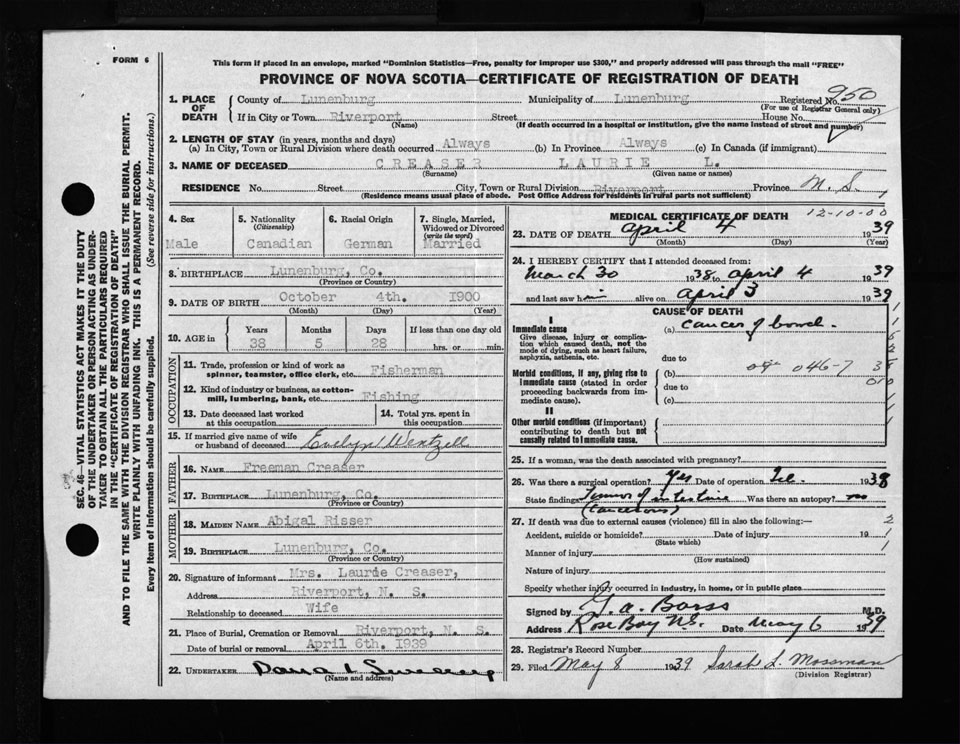 FORM 6
This form if placed in an envelope, marked "Dominion Statistics—Free, penalty for improper use $300," and properly addressed will pass through the mail "FREE"
PROVINCE OF NOVA SCOTIA—CERTIFICATE OF REGISTRATION OF DEATH
SEC. 46—VITAL STATISTICS ACT MAKES IT THE DUTY
OF THE UNDERTAKER OR PERSON ACTING AS UNDER-
TAKER TO OBTAIN ALL THE PARTICULARS REQUIRED
IN THE "CERTIFICATE OF REGISTRATION OF DEATH"
AND TO FILE THE SAME WITH THE DIVISION REGISTRAR WHO SHALL ISSUE THE BURIAL PERMIT.
WRITE PLAINLY WITH UNFADING INK. THIS IS A PERMANENT RECORD.
Every item of information should be carefully supplied. (See reverse side for instructions.)
1. PLACE OF DEATH
County of Lunenburg Municipality of Lunenburg Registered No. 950
(For use of Registrar General only)
If in City or Town Riverport Street House No.
(Name) (If death occurred in a hospital or institution, give the name instead of street and number)
2. LENGTH OF STAY (in years, months and days)
(a) In City, Town or Rural Division where death occurred Always (b) In Province Always (c) In Canada (if immigrant)
3. NAME OF DECEASED CREASER LAURIE L.
(Surname) (Given name or names)
RESIDENCE No. Street City, Town or Rural Division Riverport Province N. S.
(Residence means usual place of abode. Post Office Address for residents in rural parts not sufficient)
4. Sex
Male
5. Nationality (Citizenship)
Canadian
6. Racial Origin
German
7. Single, Married, Widowed or Divorced (write the word)
Married
8. BIRTHPLACE Lunenburg, Co.
(Province or Country)
9. DATE OF BIRTH October 4th. 1900
(Month) (Day) (Year)
10. AGE in Years Months Days If less than one day old
38 5 28 hrs. or min.
OCCUPATION
11. Trade, profession or kind of work as spinner, teamster, office clerk, etc. Fisherman
12. Kind of industry or business, as cotton-mill, lumbering, bank, etc. Fishing
13. Date deceased last worked at this occupation
14. Total yrs. spent in this occupation
15. If married give name of wife or husband of deceased Evelyn Wentzell
FATHER
16. NAME Freeman Creaser
17. BIRTHPLACE Lunenburg, Co.
(Province or Country)
MOTHER
18. MAIDEN NAME Abigal Risser
19. BIRTHPLACE Lunenburg, Co.
(Province or Country)
20. Signature of informant Mrs. Laurie Creaser,
Address Riverport, N. S.
Relationship to deceased Wife
21. Place of Burial, Cremation or Removal Riverport, N. S.
Date of burial or removal April 6th. 1939
22. UNDERTAKER
(Name and address)
MEDICAL CERTIFICATE OF DEATH
12-10-00
23. DATE OF DEATH April 4 1939
(Month) (Day) (Year)
24. I HEREBY CERTIFY that I attended deceased from:
March 30 1938 to April 4 1939
and last saw him alive on April 3 1939
CAUSE OF DEATH
I
Immediate cause (a) Cancer of bowel.
Give disease, injury or complication which caused death, not the mode of dying, such as heart failure, asphyxia, asthenia, etc.
due to
Morbid conditions, if any, giving rise to immediate cause (stated in order proceeding backwards from immediate cause).
(b) 046-7
due to
(c)
II
Other morbid conditions (if important) contributing to death but not causally related to immediate cause.
25. If a woman, was the death associated with pregnancy?
26. Was there a surgical operation? Yes Date of operation Feb. 1938
State findings Tumor of intestine Was there an autopsy? no
(Cancerous)
27. If death was due to external causes (violence) fill in also the following:—
Accident, suicide or homicide? Date of injury 19
(State which)
Manner of injury
(How sustained)
Nature of injury
Specify whether injury occurred in industry, in home, or in public place
Signed by M.D.
Address Rose Bay N.S. Date May 6 1939
28. Registrar's Record Number
29. Filed May 8 1939 Sarah L. Mossman
(Division Registrar)